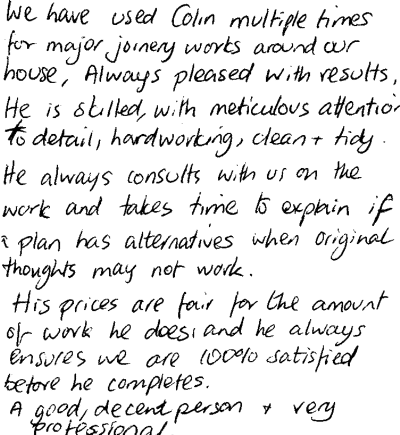 We have used Colin multiple times
for major joinery works around our
house, Always pleased with results,
He is skilled, with meticulous attention
to detail, hardworking, clean + tidy.
He always consults with us on the
work and takes time to explain if
a plan has alternatives when original
thoughts may not work.
His prices are fair for the amount
of work he does, and he always
ensures we are 100% satisfied
before he completes.
A good, decent person + very
professional.